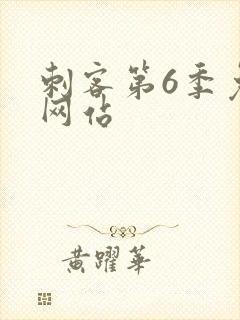 刺客第6季免
网站
黄躍華